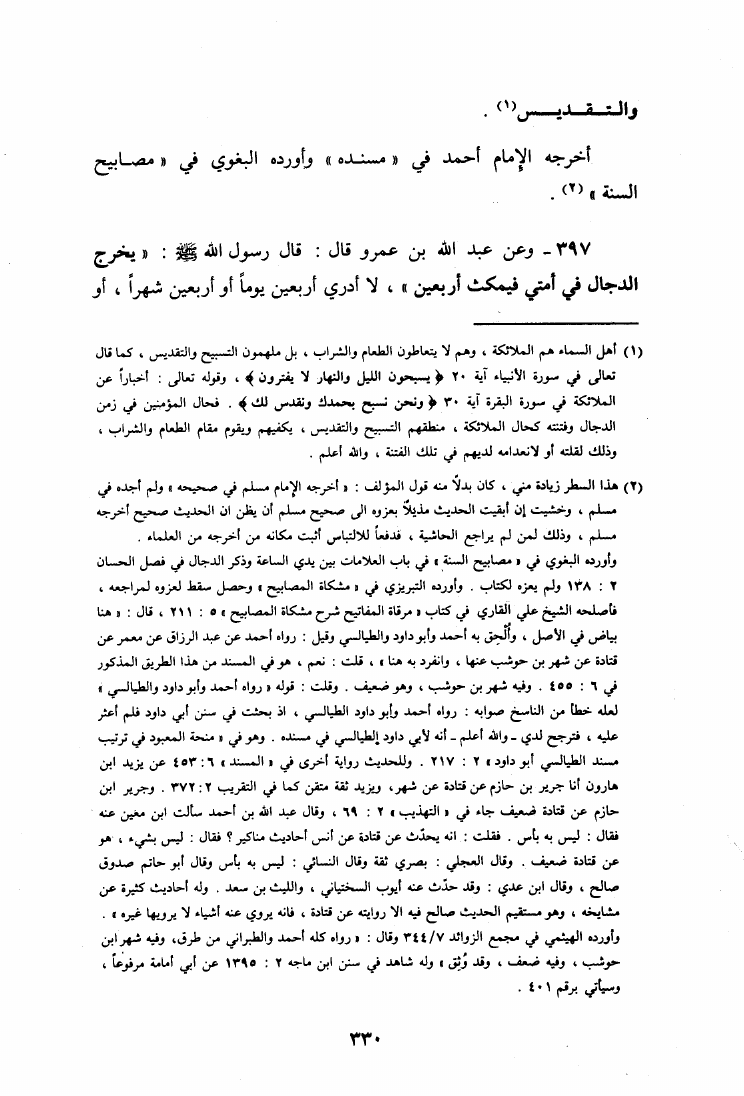 والتـقـديـس(١) .
أخرجه الإمام أحمد في « مسنده » وأورده البغوي في « مصابيح
السنة » (٢) .
٣٩٧ ـ وعن عبد الله بن عمرو قال : قال رسول الله ﷺ : « يخرج
الدجال في أمتي فيمكث أربعين » ، لا أدري أربعين يوماً أو أربعين شهراً ، أو
(١) أهل السماء هم الملائكة ، وهم لا يتعاطون الطعام والشراب ، بل ملهمون التسبيح والتقديس ، كما قال
تعالى في سورة الأنبياء آية ٢٠ ﴿ يسبحون الليل والنهار لا يفترون ﴾ ، وقوله تعالى : أخباراً عن
الملائكة في سورة البقرة آية ٣٠ ﴿ ونحن نسبح بحمدك ونقدس لك ﴾ . فحال المؤمنين في زمن
الدجال وفتنته كحال الملائكة ، منطقهم التسبيح والتقديس ، يكفيهم ويقوم مقام الطعام والشراب ،
وذلك لقلته أو لانعدامه لديهم في تلك الفتنة ، والله أعلم .
(٢) هذا السطر زيادة مني ، كان بدلاً منه قول المؤلف : « أخرجه الإمام مسلم في صحيحه » ولم أجده في
مسلم ، وخشيت إن أبقيت الحديث مذيلاً بعزوه الى صحيح مسلم أن يظن ان الحديث صحيح أخرجه
مسلم ، وذلك لمن لم يراجع الحاشية ، فدفعاً للالتباس أثبت مكانه من أخرجه من العلماء .
وأورده البغوي في « مصابيح السنة » في باب العلامات بين يدي الساعة وذكر الدجال في فصل الحسان
٢ : ١٣٨ ولم يعزه لكتاب . وأورده التبريزي في « مشكاة المصابيح » وحصل سقط لعزوه لمراجعه ،
فأصلحه الشيخ علي القاري في كتاب « مرقاة المفاتيح شرح مشكاة المصابيح » ٥ : ٢١١ ، قال : « هنا
بياض في الأصل ، وأُلحِق به أحمد وأبو داود والطيالسي وقيل : رواه أحمد عن عبد الرزاق عن معمر عن
قتادة عن شهر بن حوشب عنها ، وانفرد به هنا » ، قلت : نعم ، هو في المسند من هذا الطريق المذكور
في ٦ : ٤٥٥ . وفيه شهر بن حوشب ، وهو ضعيف . وقلت : قوله « رواه أحمد وأبو داود والطيالسي »
لعله خطأ من الناسخ صوابه : رواه أحمد وأبو داود الطيالسي ، اذ بحثت في سنن أبي داود فلم أعثر
عليه ، فترجح لدي ـ والله أعلم ـ أنه لأبي داود الطيالسي في مسنده . وهو في « منحة المعبود في ترتيب
مسند الطيالسي أبو داود » ٢ : ٢١٧ . وللحديث رواية أخرى في « المسند » ٦ : ٤٥٣ عن يزيد ابن
هارون أنا جرير بن حازم عن قتادة عن شهر ، ويزيد ثقة متقن كما في التقريب ٢ : ٣٧٢ . وجرير ابن
حازم عن قتادة ضعيف جاء في « التهذيب » ٢ : ٦٩ ، وقال عبد الله بن أحمد سألت ابن معين عنه
فقال : ليس به بأس . فقلت : انه يحدّث عن قتادة عن أنس أحاديث مناكير ؟ فقال : ليس بشيء ، هو
عن قتادة ضعيف . وقال العجلي : بصري ثقة وقال النسائي : ليس به بأس وقال أبو حاتم صدوق
صالح ، وقال ابن عدي : وقد حدّث عنه أيوب السختياني ، والليث بن سعد . وله أحاديث كثيرة عن
مشايخه ، وهو مستقيم الحديث صالح فيه الا روايته عن قتادة ، فانه يروي عنه أشياء لا يرويها غيره » .
وأورده الهيثمي في مجمع الزوائد ٣٤٤/٧ وقال : « رواه كله أحمد والطبراني من طرق، وفيه شهر ابن
حوشب ، وفيه ضعف ، وقد وُثِق » وله شاهد في سنن ابن ماجه ٢ : ١٣٩٥ عن أبي أمامة مرفوعاً ،
وسيأتي برقم ٤٠١ .
٣٣٠